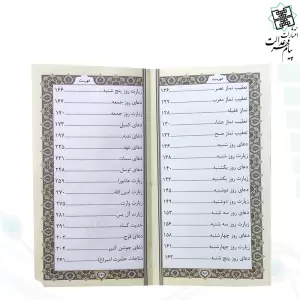 انتشارات
پیام عدالت
فهرست
تعقیب نماز عصر ۱۲۶
تعقیب نماز مغرب ۱۲۲
نماز غفیله ۱۲۸
تعقیب نماز عشاء ۱۳۱
تعقیب نماز صبح ۱۳۴
دعای روز شنبه ۱۳۷
زیارت روز شنبه ۱۳۸
دعای روز یکشنبه ۱۴۰
زیارت روز یکشنبه
دعای روز دوشنبه ۱۴۶
زیارت روز دوشنبه ۱۴۹
دعای روز سه شنبه ۱۵۰
زیارت روز سه شنبه ۱۵۶
دعای روز چهارشنبه ۱۵۸
زیارت روز چهارشنبه ۱۶۱
دعای روز پنج شنبه ۱۶۳
فهرست
زیارت روز پنج شنبه ۱۶۶
دعای روز جمعه ۱۶۷
زیارت روز جمعه ۱۷۰
دعای کمیل ۱۷۳
دعای ندبه ۱۹۷
دعای عهد ۲۳۵
دعای سمات ۲۳۱
دعای توسل ۲۴۸
زیارت عاشورا ۲۵۹
زیارت امین الله ۲۷۰
زیارت وارث ۲۸۵
زیارت آل یس ۲۸۱
حدیث کساء ۲۹۱
دعای فرج ۳۰۱
دعای جوشن کبیر ۳۰۴
مناجات حضرت امیر(ع) ۳۶۱